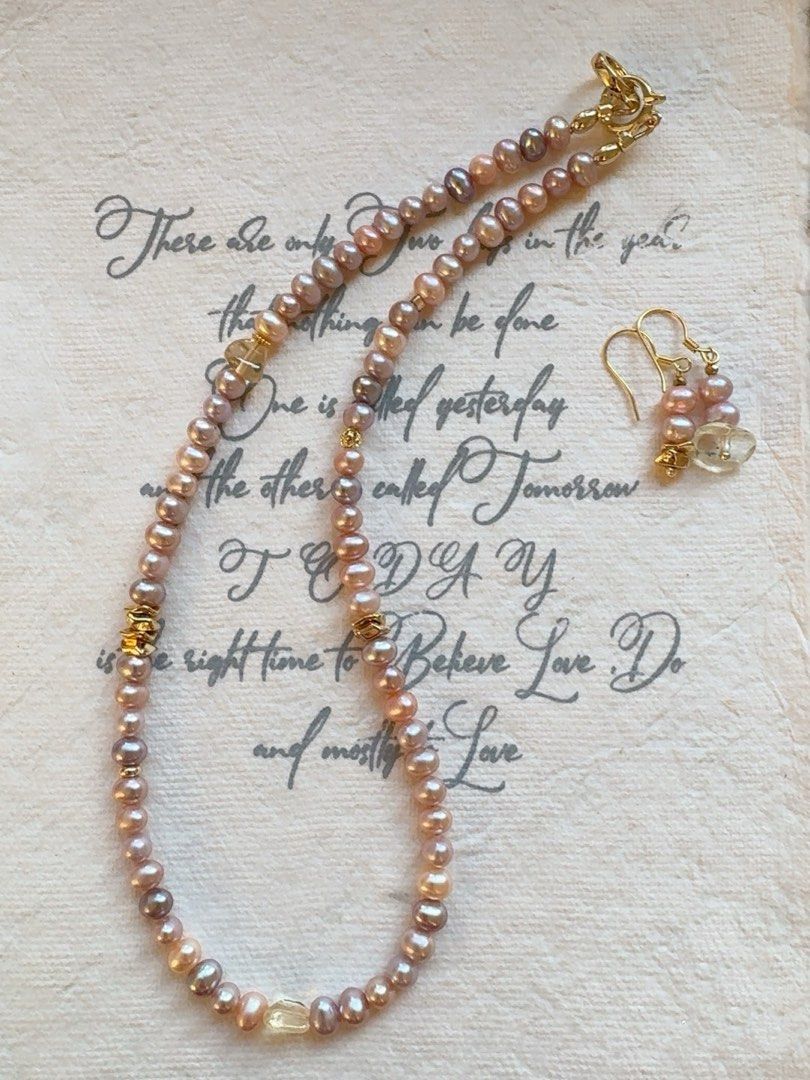 There are only Two Days in the year
that nothing can be done
One is called yesterday
and the other is called Tomorrow
T O D A Y
is the right time to Believe Love .Do
and mostly to Love